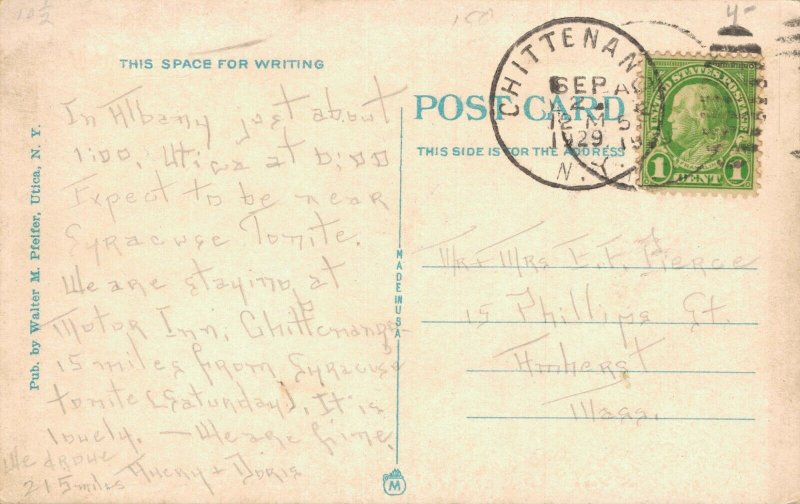 THIS SPACE FOR WRITING
In Albany just about
1:00, Utica at 5:00
Expect to be near
Syracuse Tonite.
We are staying at
Motor Inn, Chittenango
15 miles from Syracuse
tonite (Saturday). It is
lovely. — We are fine.
Avery + Doris
We drove
215 miles
Pub. by Walter M. Pfeifer, Utica, N. Y.
MADE IN USA
M
POST CARD
THIS SIDE IS FOR THE ADDRESS
CHITTENAN
SEP
12 M
1929
N.Y.
UNITED STATES POSTAGE
1 CENT 1
Mr + Mrs E. F. Pierce
15 Phillips St.
Amherst
Mass.
10 1/2